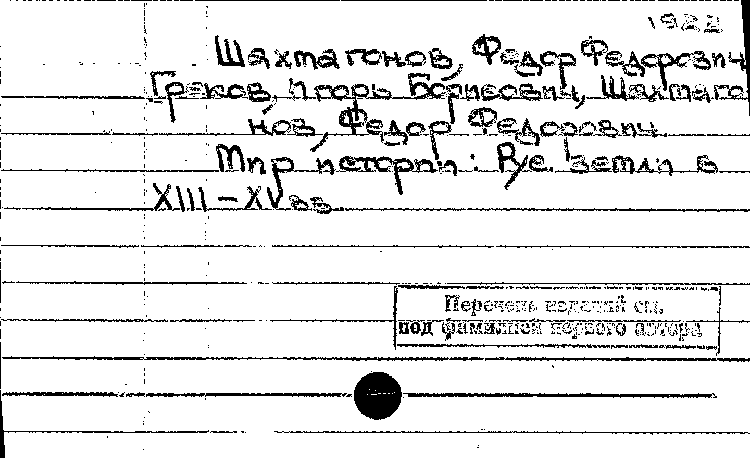 1922
Шахматонов, Федор Федорович
Греков, Игорь Борисович, Шахмаго
нов, Федор Федорович.
Мир истории: Рус. земли в
XIII – XV вв.
Перечень изданий см.
под фамилией первого автора